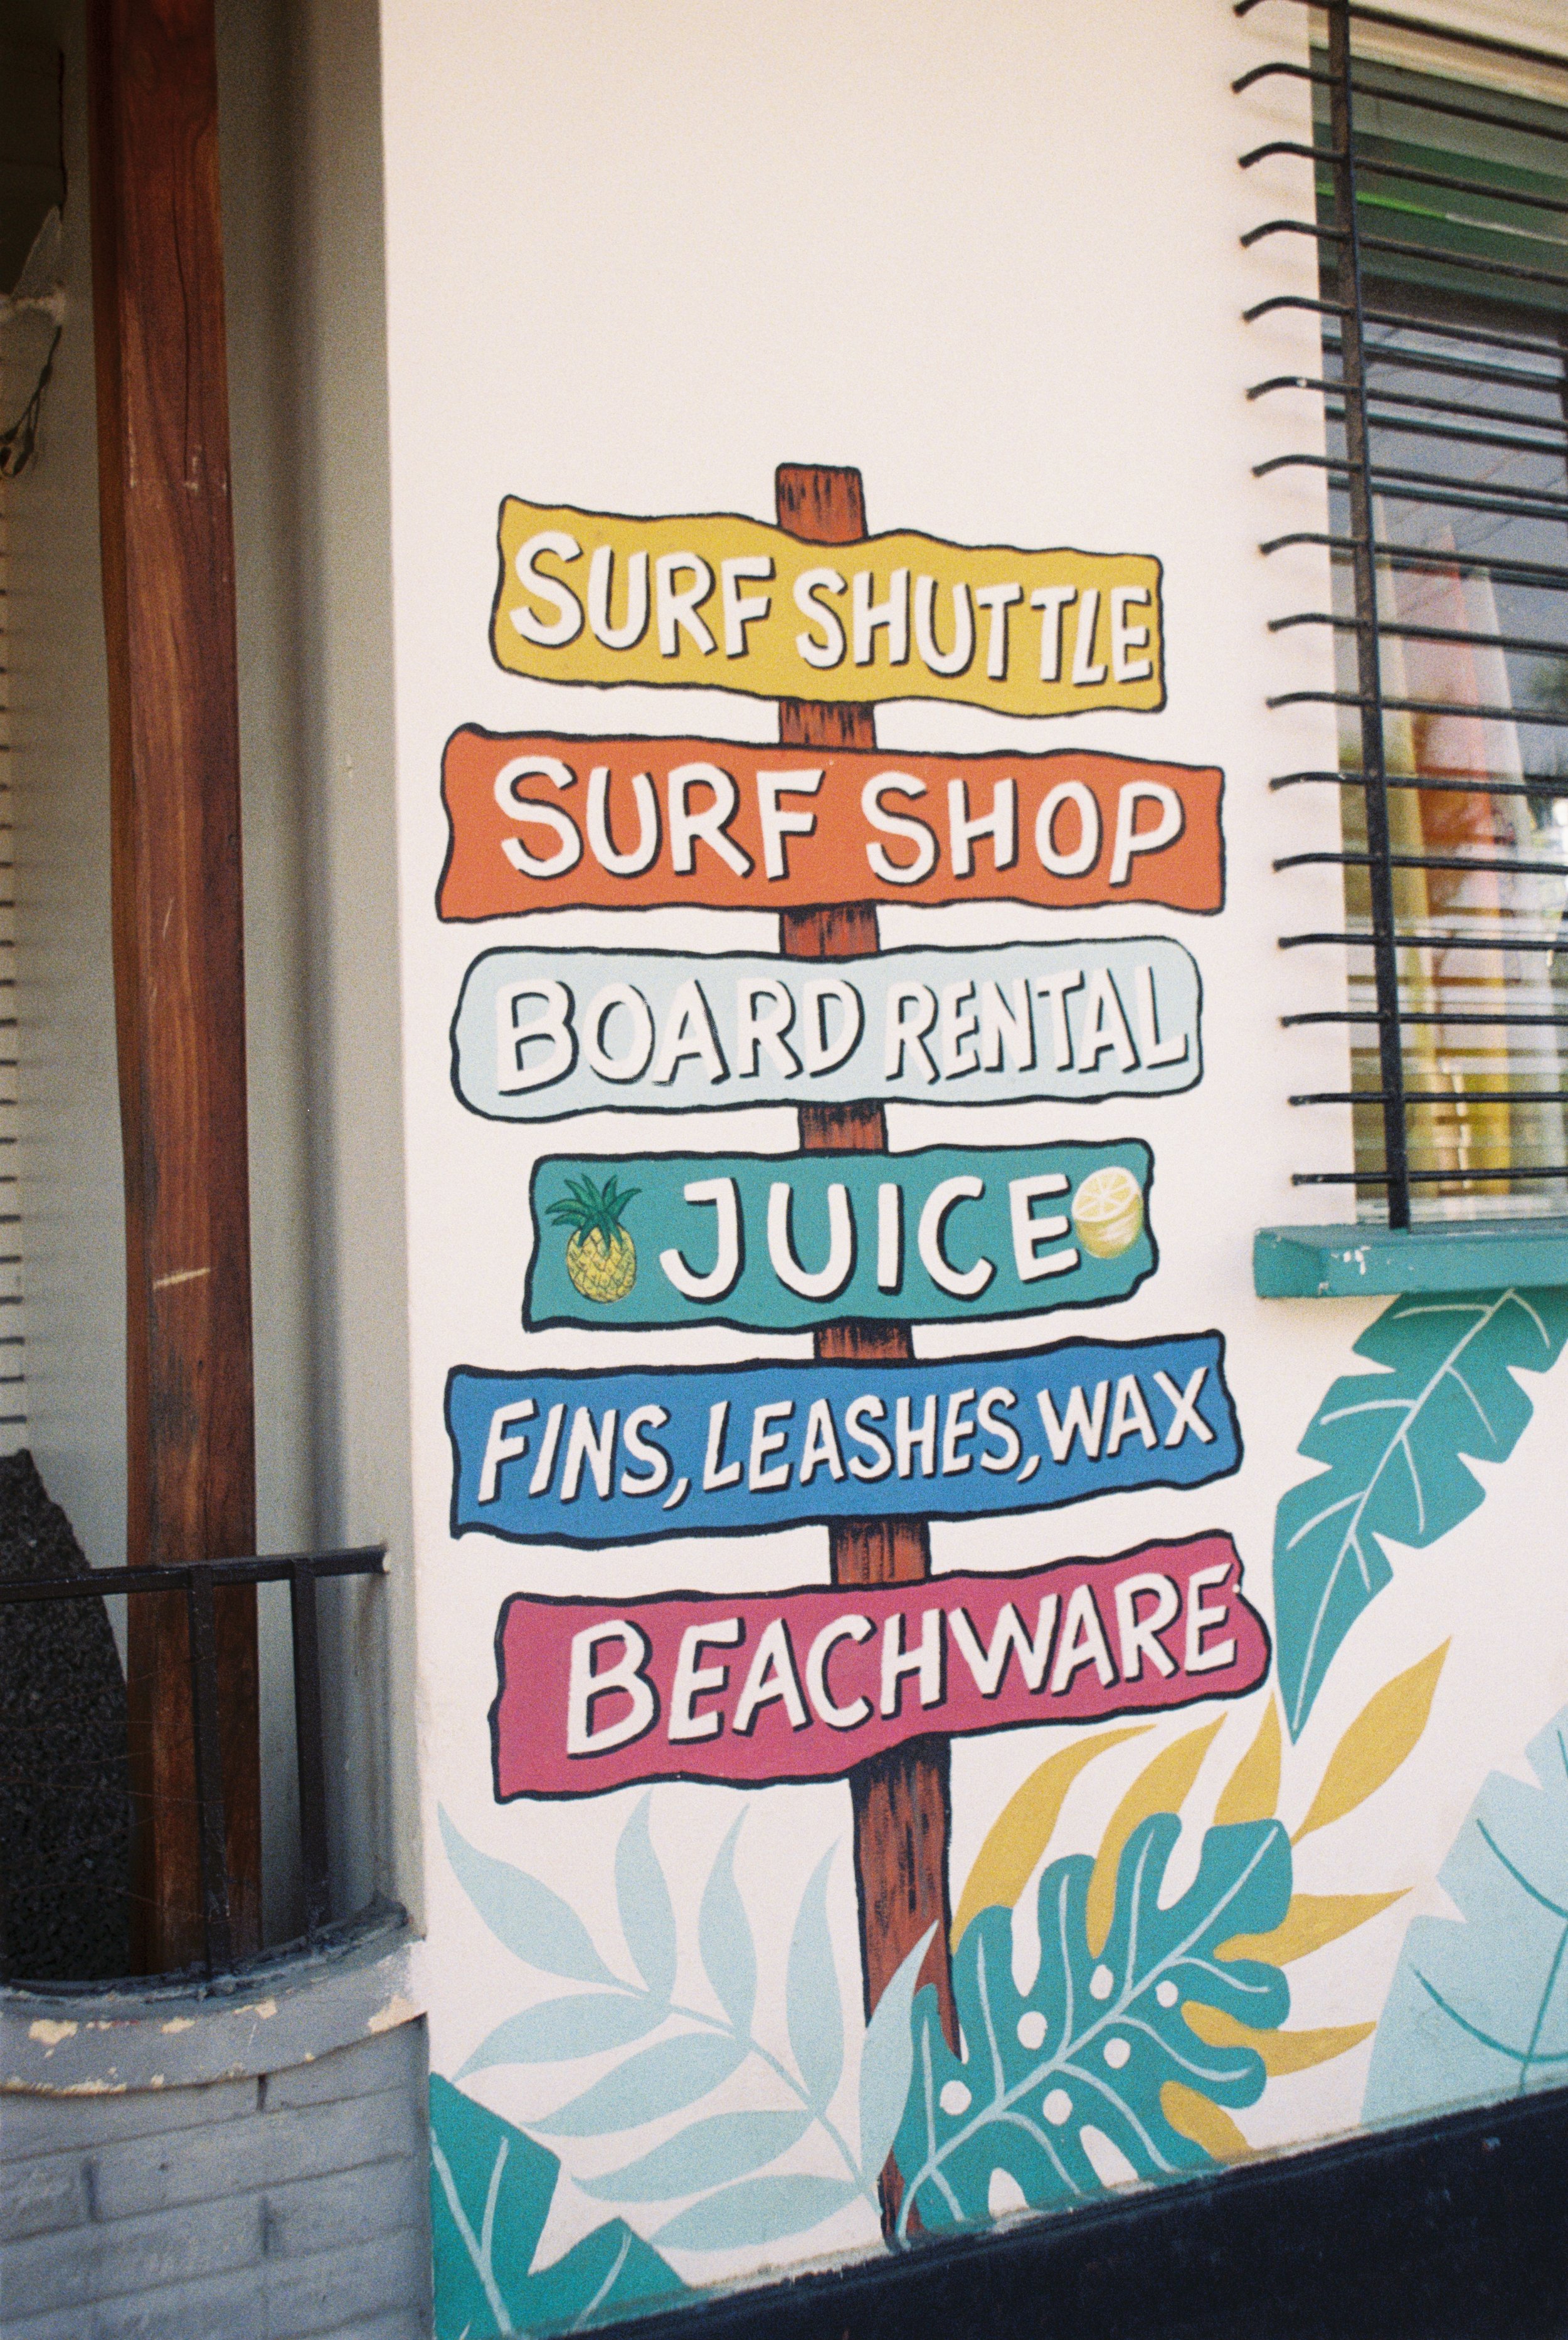 SURF SHUTTLE
SURF SHOP
BOARD RENTAL
JUICE
FINS, LEASHES, WAX
BEACHWARE